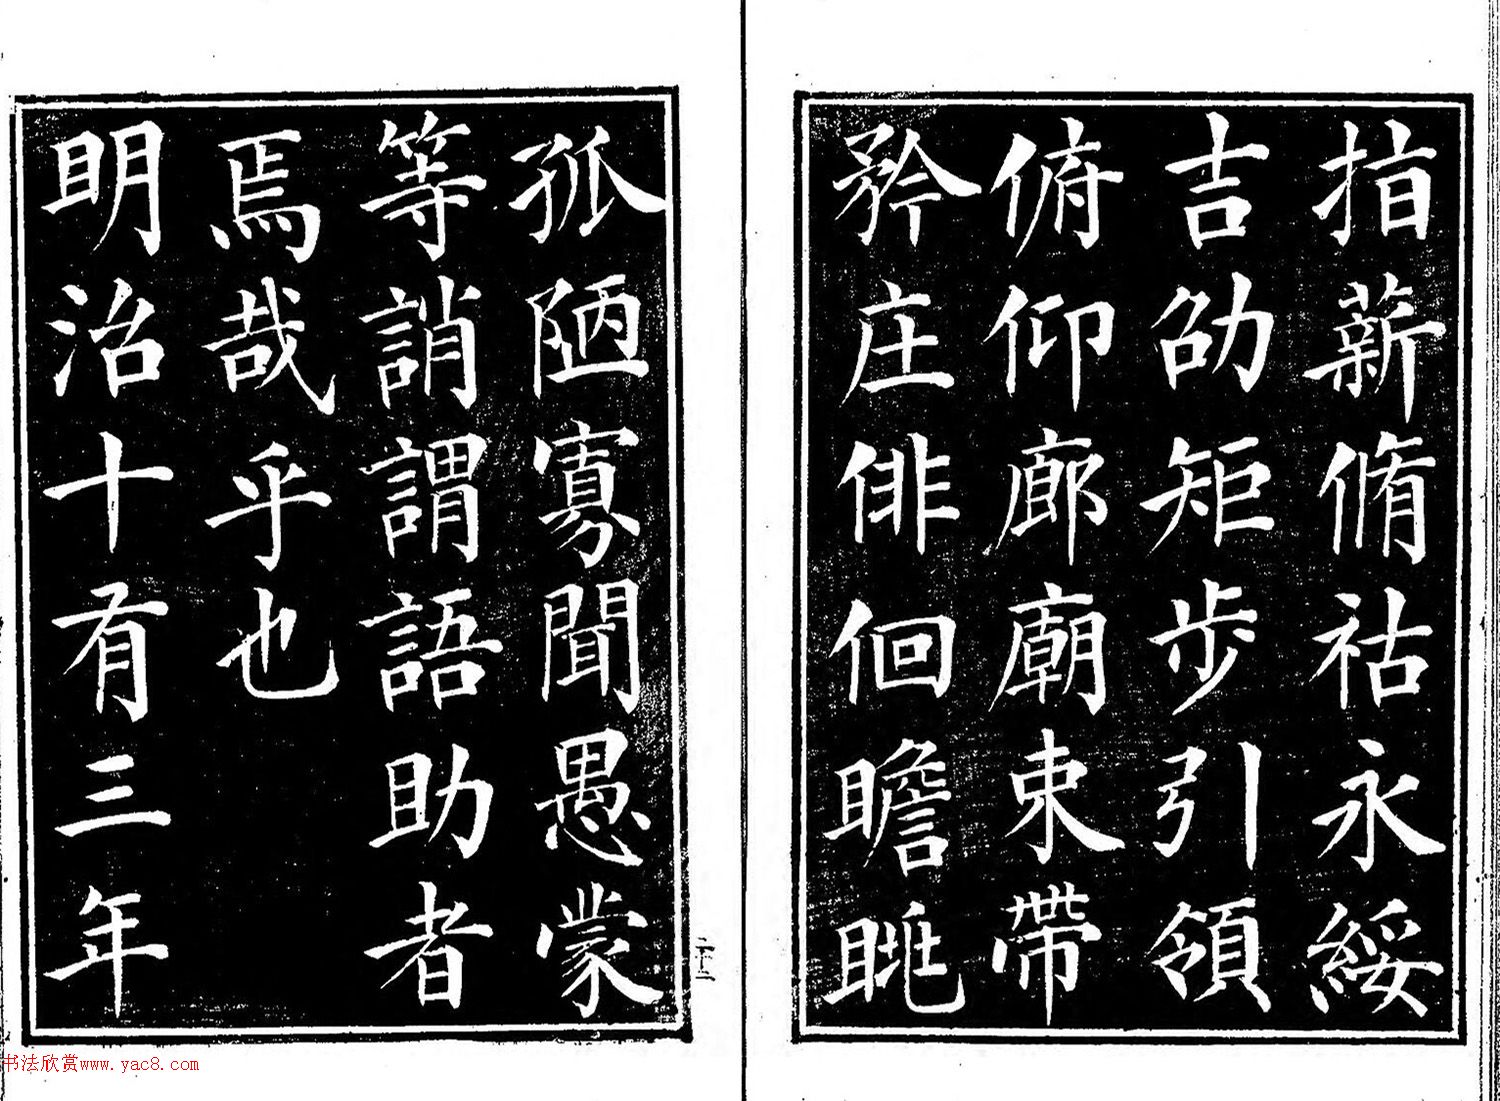 指薪脩祜永綏
吉劭矩步引領
俯仰廊廟束帶
矜庄俳佪瞻眺
孤陋寡聞愚蒙
等誚謂語助者
焉哉乎也
明治十有三年
二十三
书法欣赏www.yac8.com